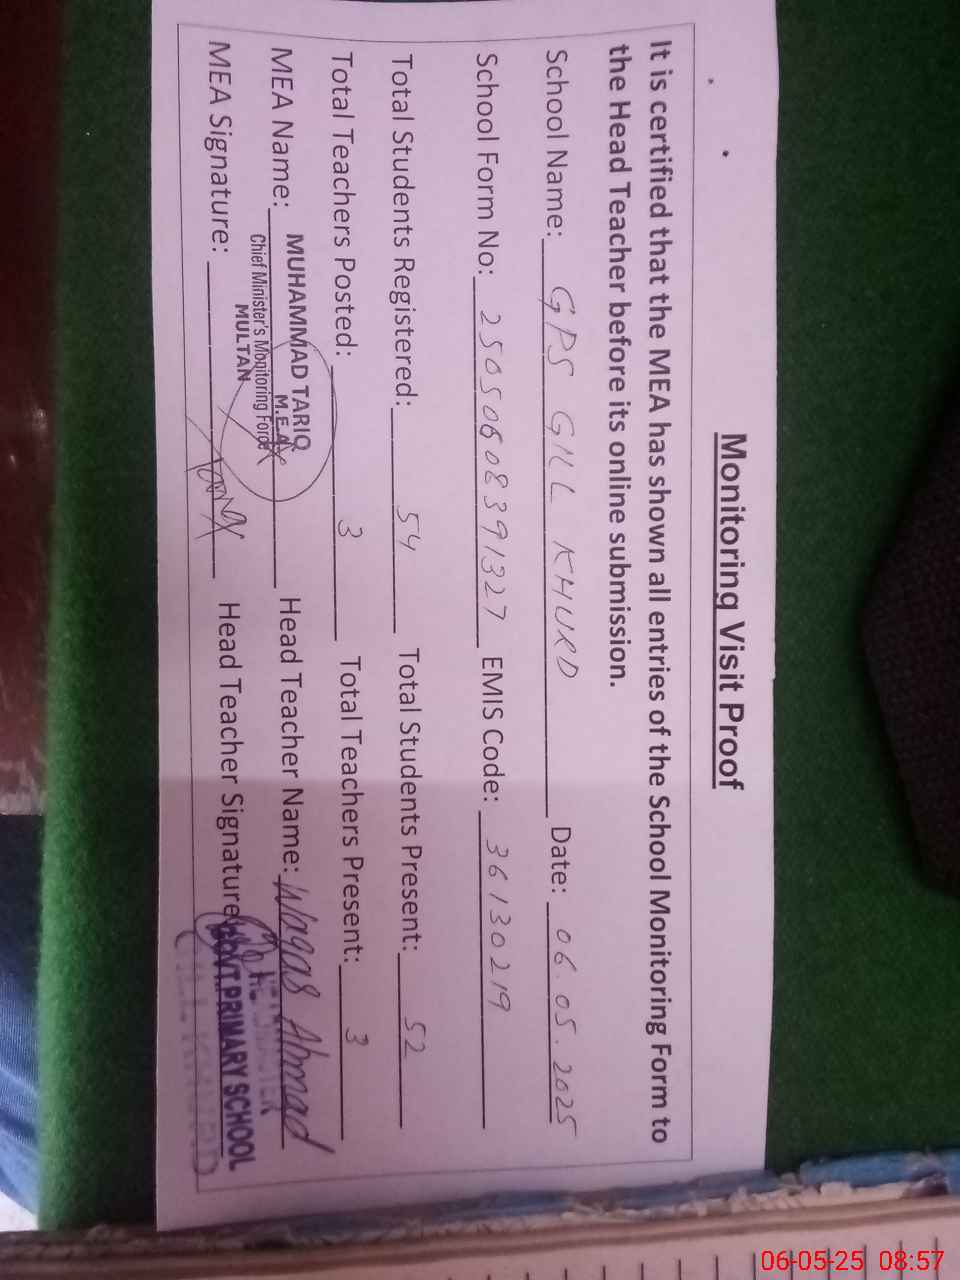 Monitoring Visit Proof
It is certified that the MEA has shown all entries of the School Monitoring Form to
the Head Teacher before its online submission.
School Name: GPS GILL KHURD Date: 06.05.2025
School Form No: 25050608391327 EMIS Code: 36130219
Total Students Registered: 54 Total Students Present: 52
Total Teachers Posted: 3 Total Teachers Present: 3
MEA Name: MUHAMMAD TARIQ Head Teacher Name: Waqas Ahmad
M.E.A
Chief Minister's Monitoring Force
MULTAN
MEA Signature: Head Teacher Signature
GOVT. PRIMARY SCHOOL
06-05-25 08:57